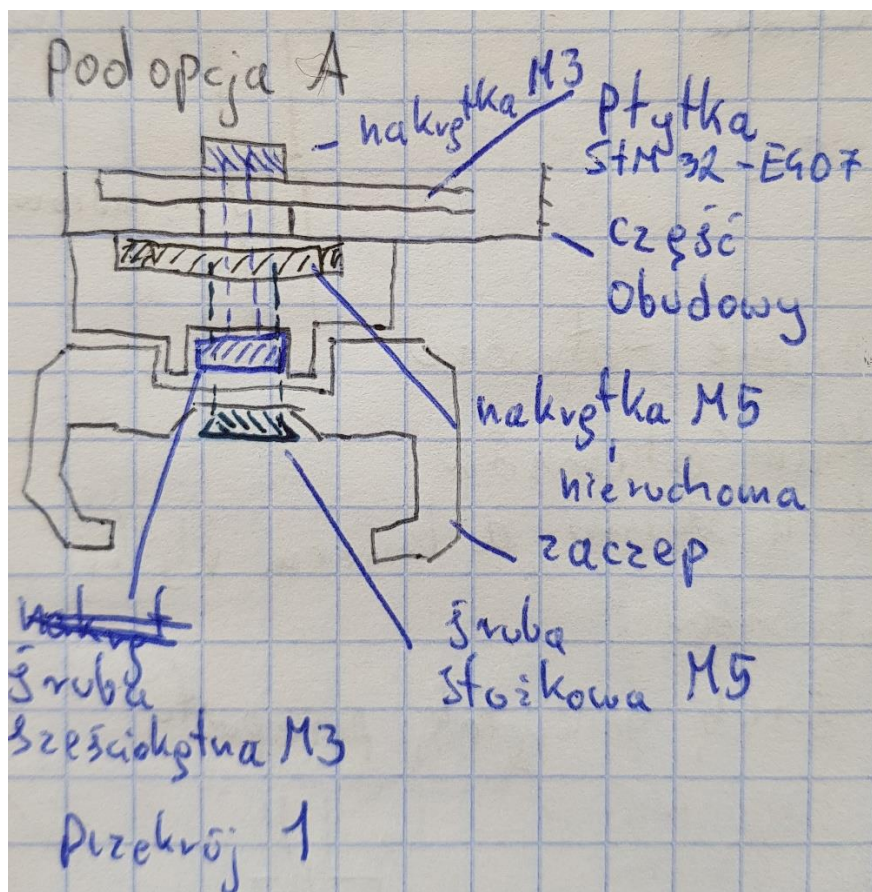 Podopcja A
nakrętka M3
Płytka
STM 32-E407
część
obudowy
nakrętka M5
nieruchoma
zaczep
śruba
stożkowa M5
śruba
sześciokątna M3
Przekrój 1